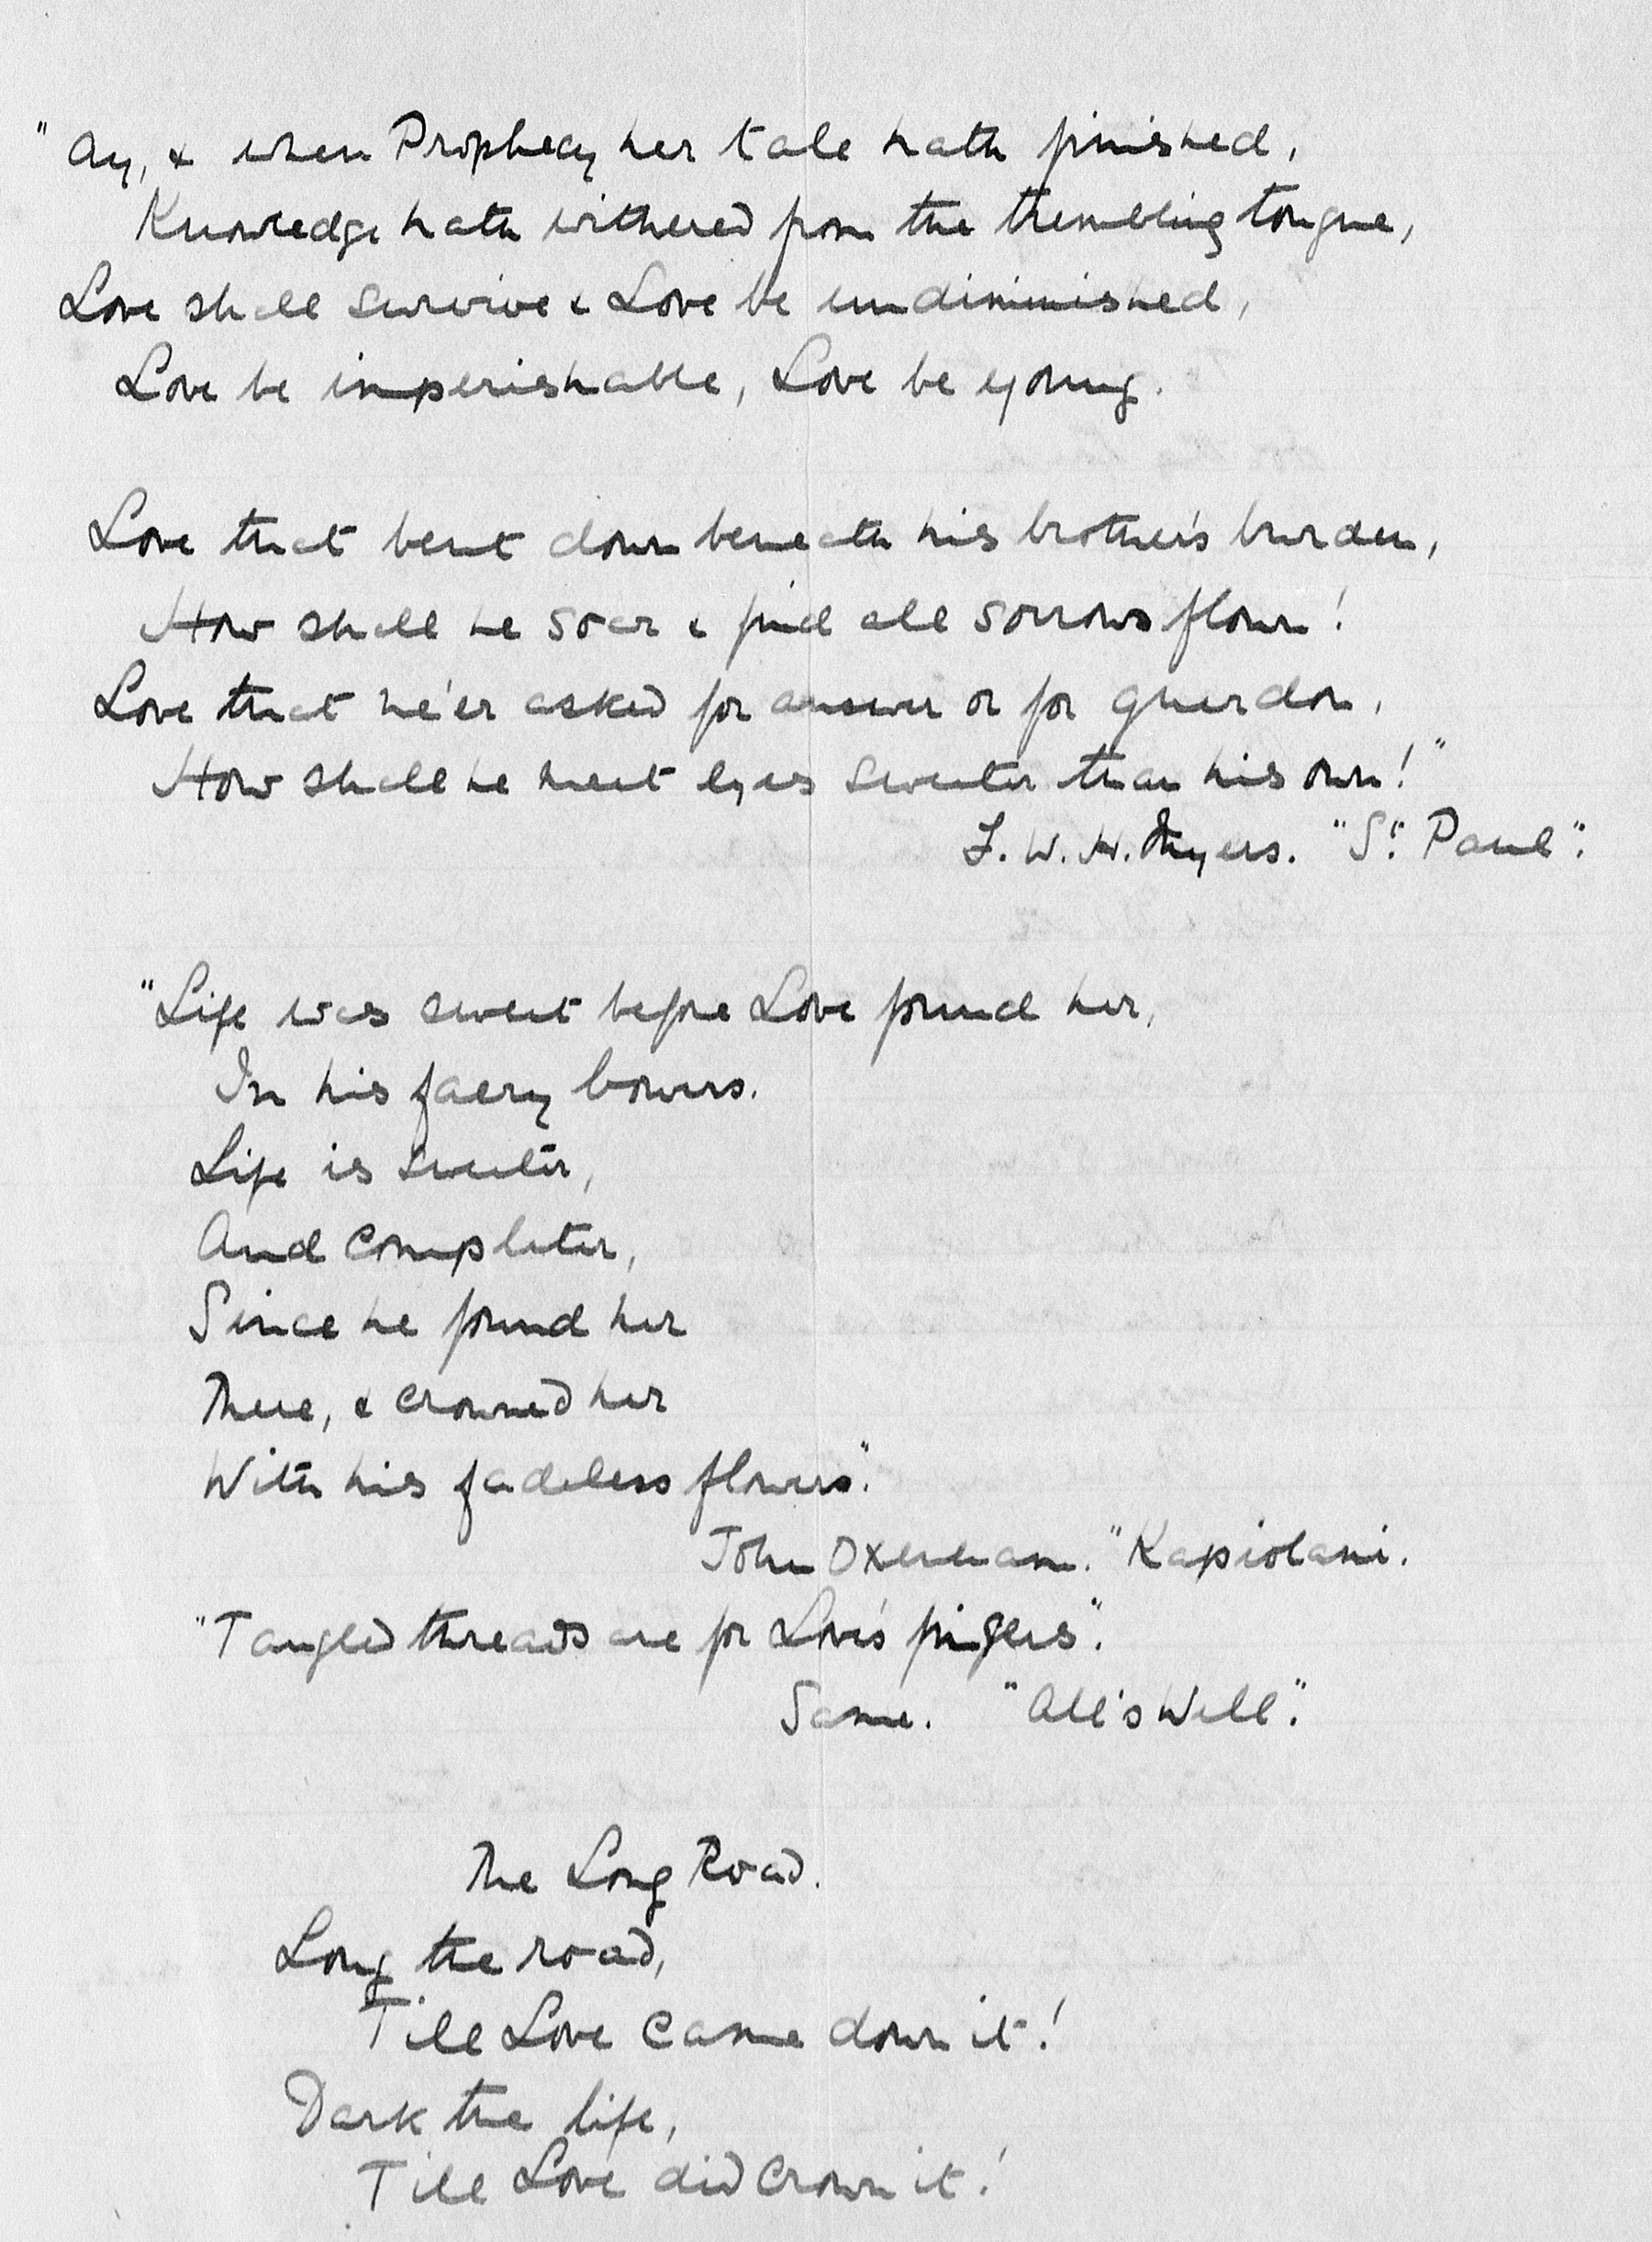 "Ay, & when Prophecy her tale hath finished,
Knowledge hath withered from the trembling tongue,
Love shall survive & Love be undiminished,
Love be imperishable, Love be young.
Love that bent down beneath his brother's burden,
How shall he soar & find all sorrows flown!
Love that ne'er asked for answer or for guerdon,
How shall he meet eyes sweeter than his own!"
F. W. H. Myers. "St. Paul".
"Life was sweet before Love found her,
In his faery bowers.
Life is sweeter,
And completer,
Since he found her
There, & crowned her
With his fadeless flowers".
John Oxenham. "Kapiolani.
"Tangled threads are for Love's fingers".
Same. "All's Well".
The Long Road.
Long the road,
Till Love came down it!
Dark the life,
Till Love did crown it!